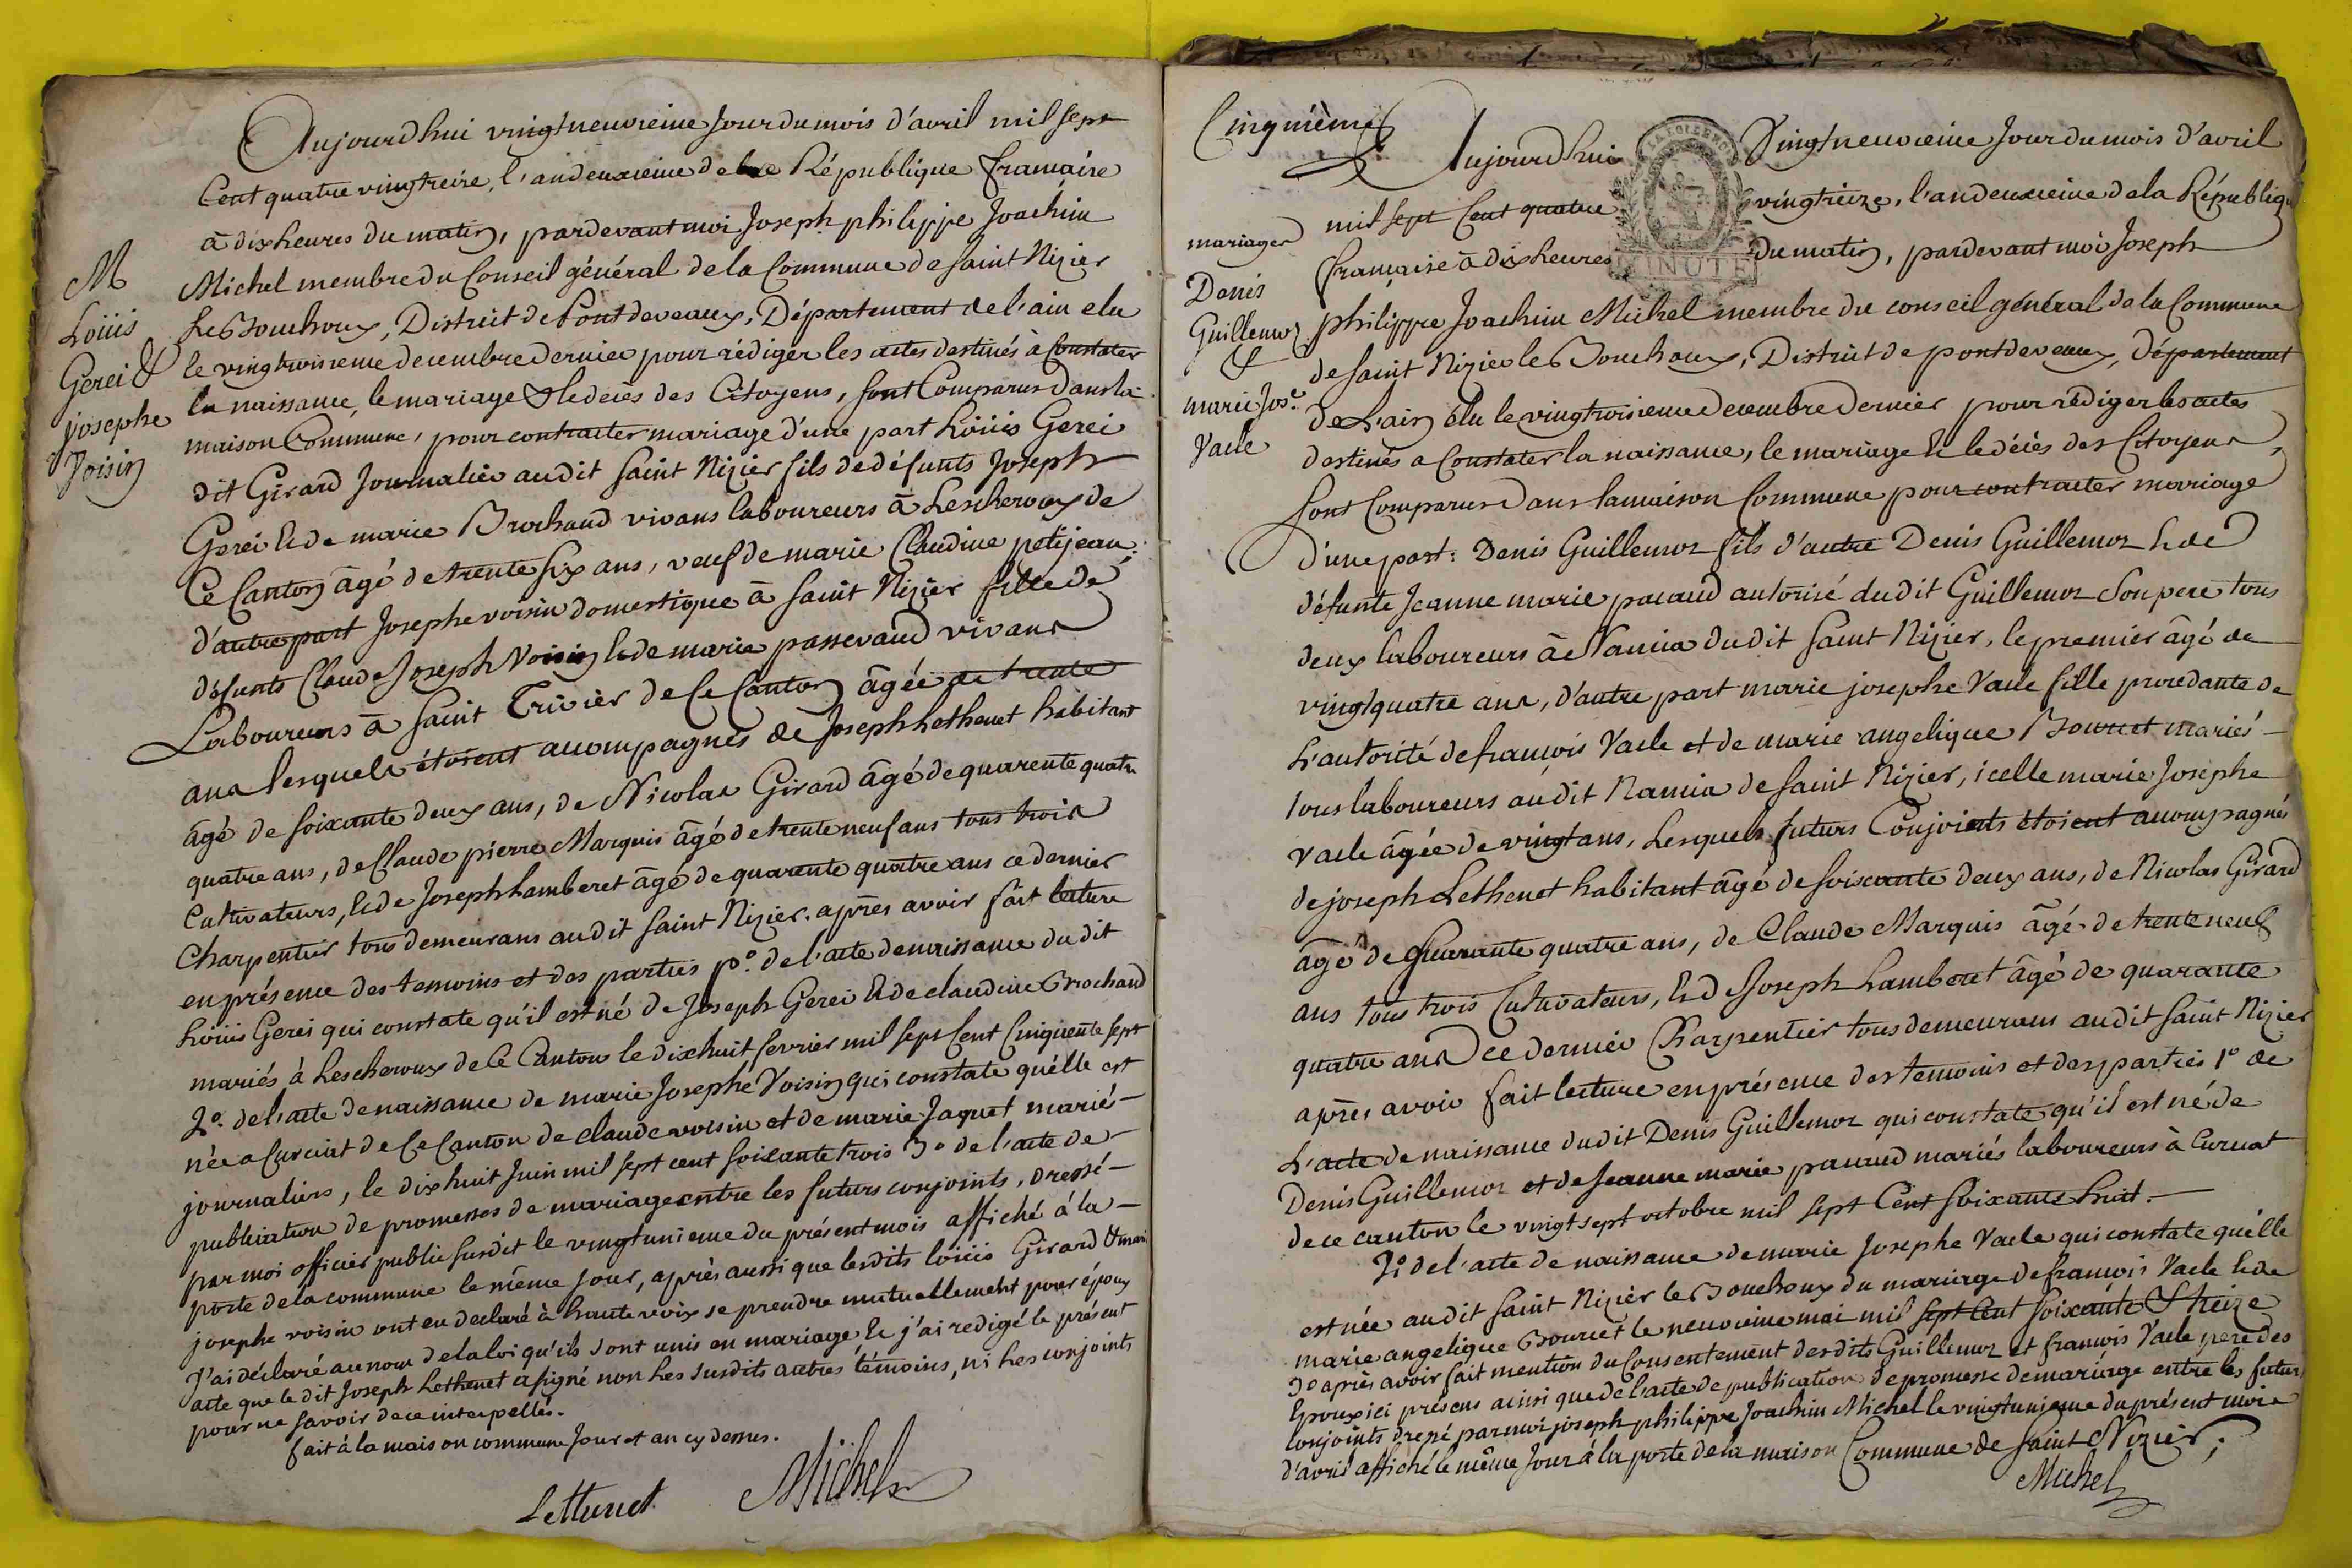 Aujourd'hui vingt neuvieme Jour du mois d'avril mil sept
Cent quatre vingt treize, l'an deuxieme de la République francaise
à dix heures du matin, pardevant moi Joseph philippe Joachim
Michel membre du Conseil général de la Commune de saint Nizier
M
Loüis
Gerei &
josephe
Voisin
le Bouchoux, District de Pontdevaux, Département de l'ain elu
le vingtroisieme decembre dernier pour rédiger les actes destinés à Constater
la naissance, le mariage & le décès des Citoyens, sont Comparus dans la
maison Commune, pour contracter mariage d'une part Loüis Gerei
dit Girard Journalier audit saint Nizier fils de défunts Joseph
Gerei & de marie Brochand vivans laboureurs à Lescheroux de
Ce Canton âgé de trente six ans, veuf de marie Claudine petijean:
d'autre part Josephe voisin domestique à saint Nizier fille de
défunts Claude Joseph Voisin & de marie passevaud vivans
Laboureurs à saint Trivier de Ce Canton âgée de trente
ans lesquels étoient accompagnés de Joseph Lethenet habitant
âgé de soixante deux ans, de Nicolas Girard âgé de quarente quatre
quatre ans, de Claude pierre Marquis âgé de trente neuf ans tous trois
Cultivateurs, & de Joseph Lamberet âgé de quarente quatre ans ce dernier
Charpentier tous demeurans audit saint Nizier. après avoir fait lecture
en présence des temoins et des parties po. de l'acte de naissance dudit
Loüis Gerei qui constate qu'il est né de Joseph Gerei & de claudine Brochand
mariés à Lescheroux de Ce Canton le dixhuit fevrier mil sept Cent Cinquente sept
2o. de l'acte de naissance de marie Josephe Voisin qui constate qu'élle est
née a Curciat de Ce Canton de claude voisin et de marie Jaquet mariés
journaliers, le dixhuit Juin mil sept cent soixante trois 3o de l'acte de
publication de promesses de mariage entre les futurs conjoints, dressé
par moi officier public susdit le vingt unieme du présent mois affiché à la
porte de la commune le même jour, après aussi que lesdits loüis Girard & marie
josephe voisin ont eu declaré à haute voix se prendre mutuellement pour époux
J'ai déclaré au nom de la loi qu'ils sont unis en mariage & j'ai redigé le présent
acte que le dit Joseph Lethenet a signé non les susdits autres témoins, ni les conjoints
pour ne savoir de ce interpellés.
fait à la maison commune jour et an cy dessus.
Lethenet Michel
Cinquième
Aujourd'hui Vingt neuvieme Jour du mois d'avril
mil sept Cent quatre vingtreize, l'an deuxieme de la Républiqu
MINUTE
mariage
Denis
Guillemoz
&
marie Jose.
Vacle
française à dix heures du matin, pardevant moi Joseph
philippe Joachim Michel membre du conseil général de la Commune
de saint Nizier le Bouchoux, District de pontdevaux, département
de L'ain élu le vingtroisieme decembre dernier pour rédiger les actes
destinés a Constater la naissance, le mariage & le décès des Citoyens,
sont Comparus dans la maison Commune pour contracter mariage
d'une part: Denis Guillemoz fils d'autre Denis Guillemoz & de
défunte Jeanne marie pacaud autorisé dudit Guillemoz son pere tous
deux laboureurs à Namia dudit saint Nizier, le premier âgé de
vingt quatre ans, d'autre part marie josephe Vacle fille procedante de
L'autorité de françois Vacle et de marie angelique Bourcet mariés
tous laboureurs audit Namia de saint Nizier, icelle marie Josephe
Vacle âgée de vingt ans, Lesquels futurs Conjoints étoient accompagnés
de joseph Lethenet habitant âgé de soixante deux ans, de Nicolas Girard
âgé de quarante quatre ans, de Claude Marquis âgé de trente neuf
ans tous trois Cultivateurs, & de Joseph Lamberet âgé de quarante
quatre ans ce dernier Charpentier tous demeurans audit saint Nizier
après avoir fait lecture en présence des temoins et des parties 1o de
L'acte de naissance dudit Denis Guillemoz qui constate qu'il est né de
Denis Guillemoz et de Jeanne marie pacaud mariés laboureurs à Curciat
de ce canton le vingt sept octobre mil sept Cent soixante huit.
2o de l'acte de naissance de marie Josephe Vacle qui constate qu'elle
est née audit saint Nizier le Bouchoux du mariage de francois Vacle & de
marie angelique Bourcet le neuvieme mai mil sept Cent soixante & treize
3o après avoir fait mention du Consentement desdits Guillemoz et francois Vacle pere des
Epoux ici présens ainsi que de l'acte de publication de promesse de mariage entre les futurs
Conjoints dressé par moi joseph philippe Joachim Michel le vingt unieme du présent mois
d'avril affiché le même Jour à la porte de la maison Commune de saint Nizier;
Michel